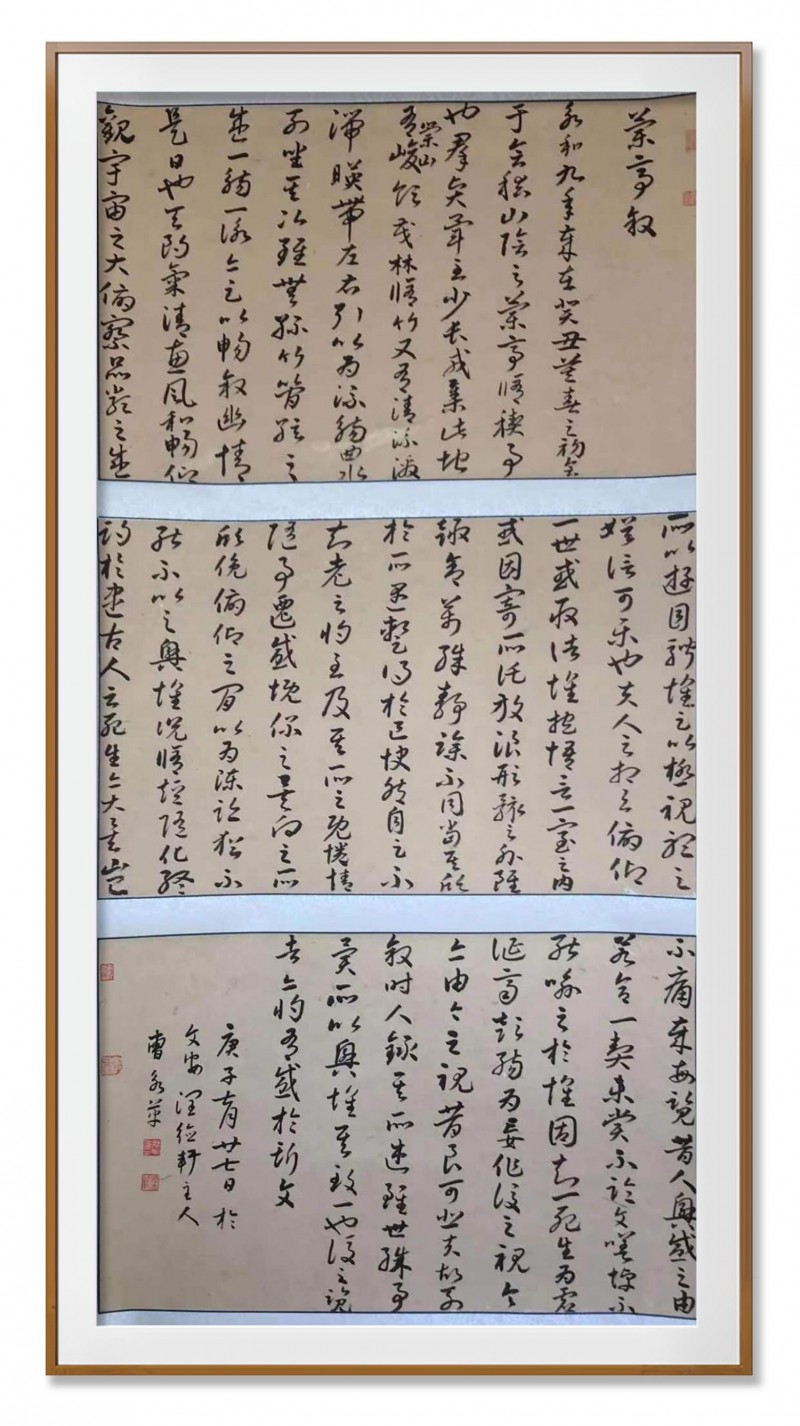 蘭亭敘
永和九年歲在癸丑暮春之初會
于會稽山陰之蘭亭脩禊事
也群賢畢至少長咸集此地
有崇山峻領茂林脩竹又有清流激
湍暎帶左右引以為流觴曲水
列坐其次雖無絲竹管弦之
盛一觴一詠亦足以暢敘幽情
是日也天朗氣清惠風和暢仰
觀宇宙之大俯察品類之盛
所以遊目騁懷足以極視聽之
娛信可樂也夫人之相與俯仰
一世或取諸懷抱悟言一室之內
或因寄所託放浪形骸之外雖
趣舍萬殊靜躁不同當其欣
於所遇暫得於己快然自足不
知老之將至及其所之既惓情
隨事遷感慨係之矣向之所
欣俛俯仰之間以為陳迹猶不
能不以之興懷況脩短隨化終
期於盡古人云死生亦大矣豈
不痛哉每覽昔人興感之由
若合一契未嘗不臨文嗟悼不
能喻之於懷固知一死生為虛
誕齊彭殤為妄作後之視今
亦由今之視昔良可悲夫故列
敘時人錄其所述雖世殊事
異所以興懷其致一也後之覽
者亦將有感於斯文
庚子月廿七日於
文安軒主人
曹永